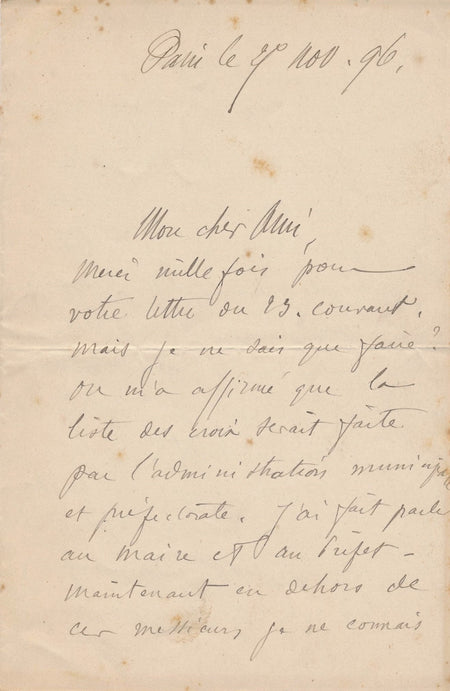 Paris le nov. 96.
Mon cher Ami,
Merci mille fois pour
votre lettre du 23. courant.
Mais je ne sais que faire?
On m'a affirmé que la
liste des croix serait faite
par l'administration municipale
et préfectorale. J'ai fait parler
au Maire et au Préfet -
Maintenant en dehors de
ces messieurs je ne connais